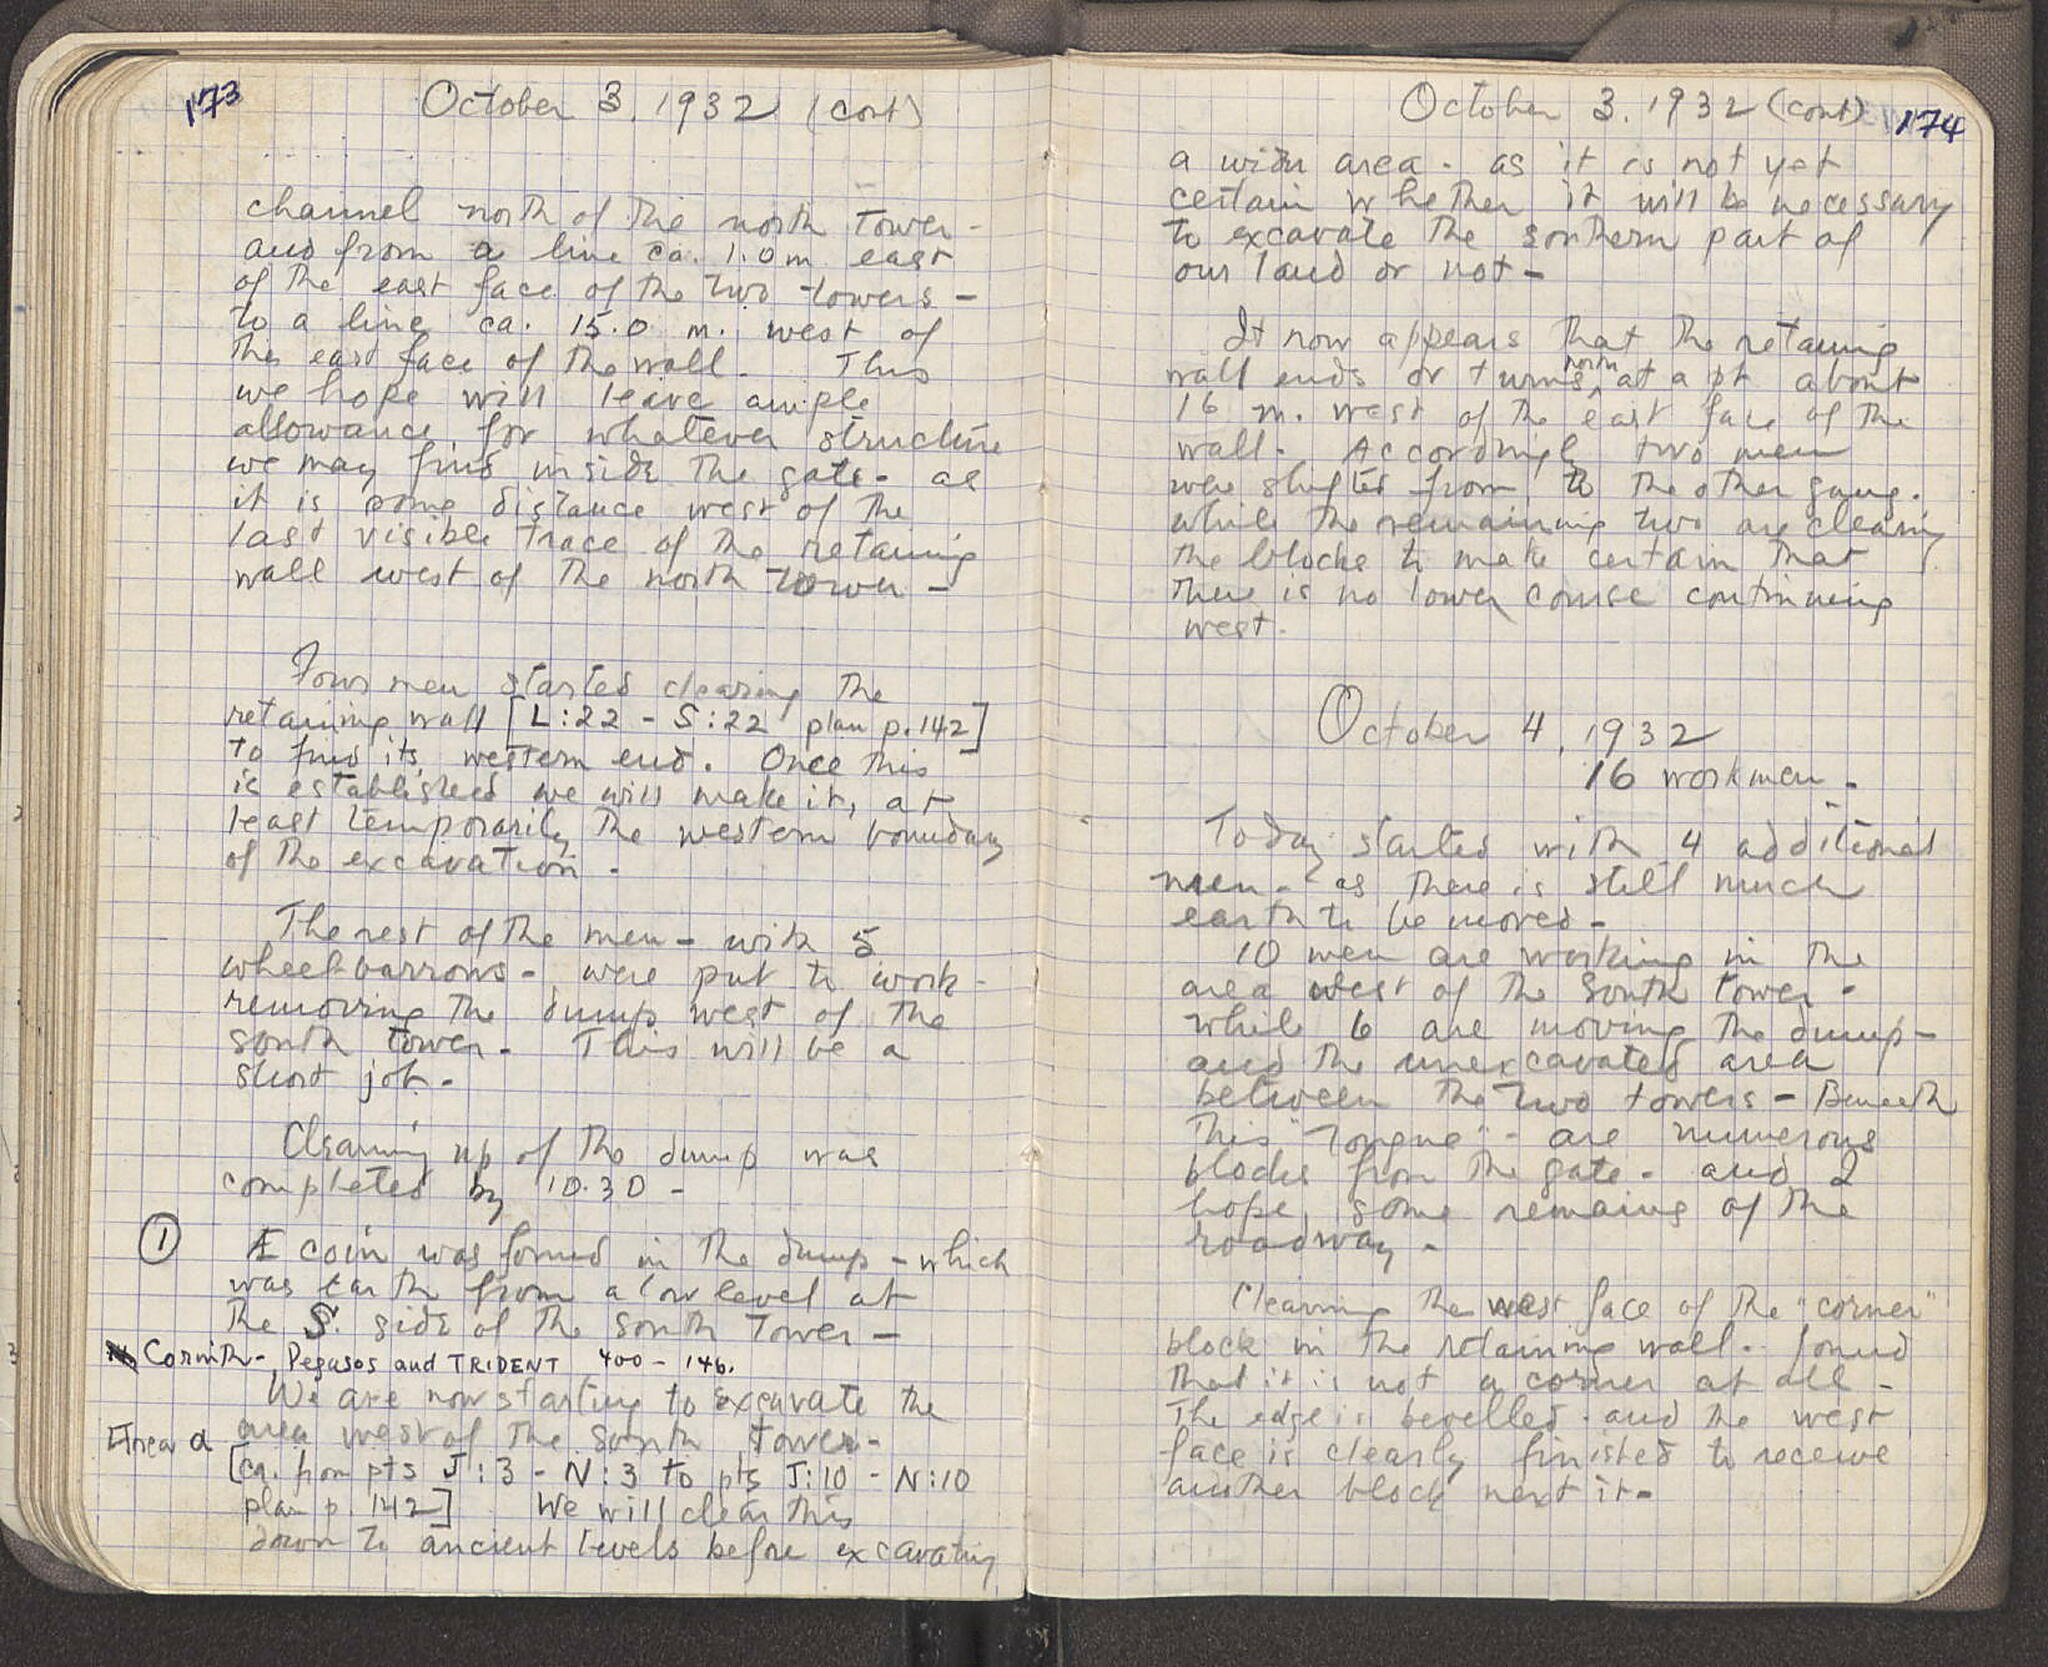 173
October 3. 1932 (cont)
channel north of the north tower -
and from a line ca. 1.0 m east
of the east face of the two towers -
to a line ca. 15.0 m. west of
the east face of the wall. This
we hope will leave ample
allowance for whatever structure
we may find inside the gate - as
it is some distance west of the
last visible trace of the retaining
wall west of the north tower -
Four men started clearing the
retaining wall [L:22 - S:22 plan p. 142]
to find its western end. Once this
is established we will make it, at
least temporarily the western boundary
of the excavation -
The rest of the men - with 5
wheelbarrows - were put to work
removing the dump west of the
south tower - This will be a
short job -
Cleaning up of the dump was
completed by 10.30 -
① A coin was found in the dump - which
was earth from a low level at
the S. side of the south tower -
Corinth - Pegasos and TRIDENT 400 - 146.
We are now starting to excavate the
Area a area west of the south tower -
[ca. from pts J:3 - N:3 to pts J:10 - N:10
plan p. 142] We will clear this
down to ancient levels before excavating
October 3. 1932 (cont) 174
a wider area - as it is not yet
certain whether it will be necessary
to excavate the southern part of
our land or not -
It now appears that the retaining
wall ends or turns north at a pt about
16 m. west of the east face of the
wall. Accordingly two men
were shifted from to the other gang.
while the remaining two are cleaning
the blocks to make certain that
there is no lower course continuing
west.
October 4, 1932
16 workmen -
Today started with 4 additional
men - as there is still much
earth to be moved -
10 men are working in the
area west of the south tower -
while 6 are moving the dump -
and the unexcavated area
between the two towers - Beneath
this "tongue" - are numerous
blocks from the gate - and I
hope some remains of the
roadway -
Cleaning the west face of the "corner"
block in the retaining wall - found
that it is not a corner at all -
The edge is bevelled - and the west
face is clearly finished to receive
another block next it -